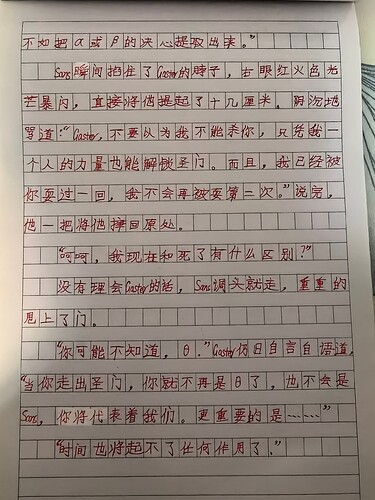 不如把α或β的决心提取出来。"
Sans瞬间掐住了Gaster的脖子，右眼红火色光
芒暴闪，直接将他提起了十几厘米。阴沉地
骂道："Gaster，不要认为我不能杀你，只凭我一
个人的力量也能解锁圣门。而且，我已经被
你耍过一回，我不会再被耍第二次。"说完，
他一把将他摔回原处。
"呵呵，我现在和死了有什么区别？"
没有理会Gaster的话，Sans调头就走，重重的
甩上了门。
"你可能不知道，θ．"Gaster仍旧自言自语道，
"当你走出圣门，你就不再是θ了，也不会是
Sans，你将代表着我们。更重要的是……"
"时间也将起不了任何作用了．"